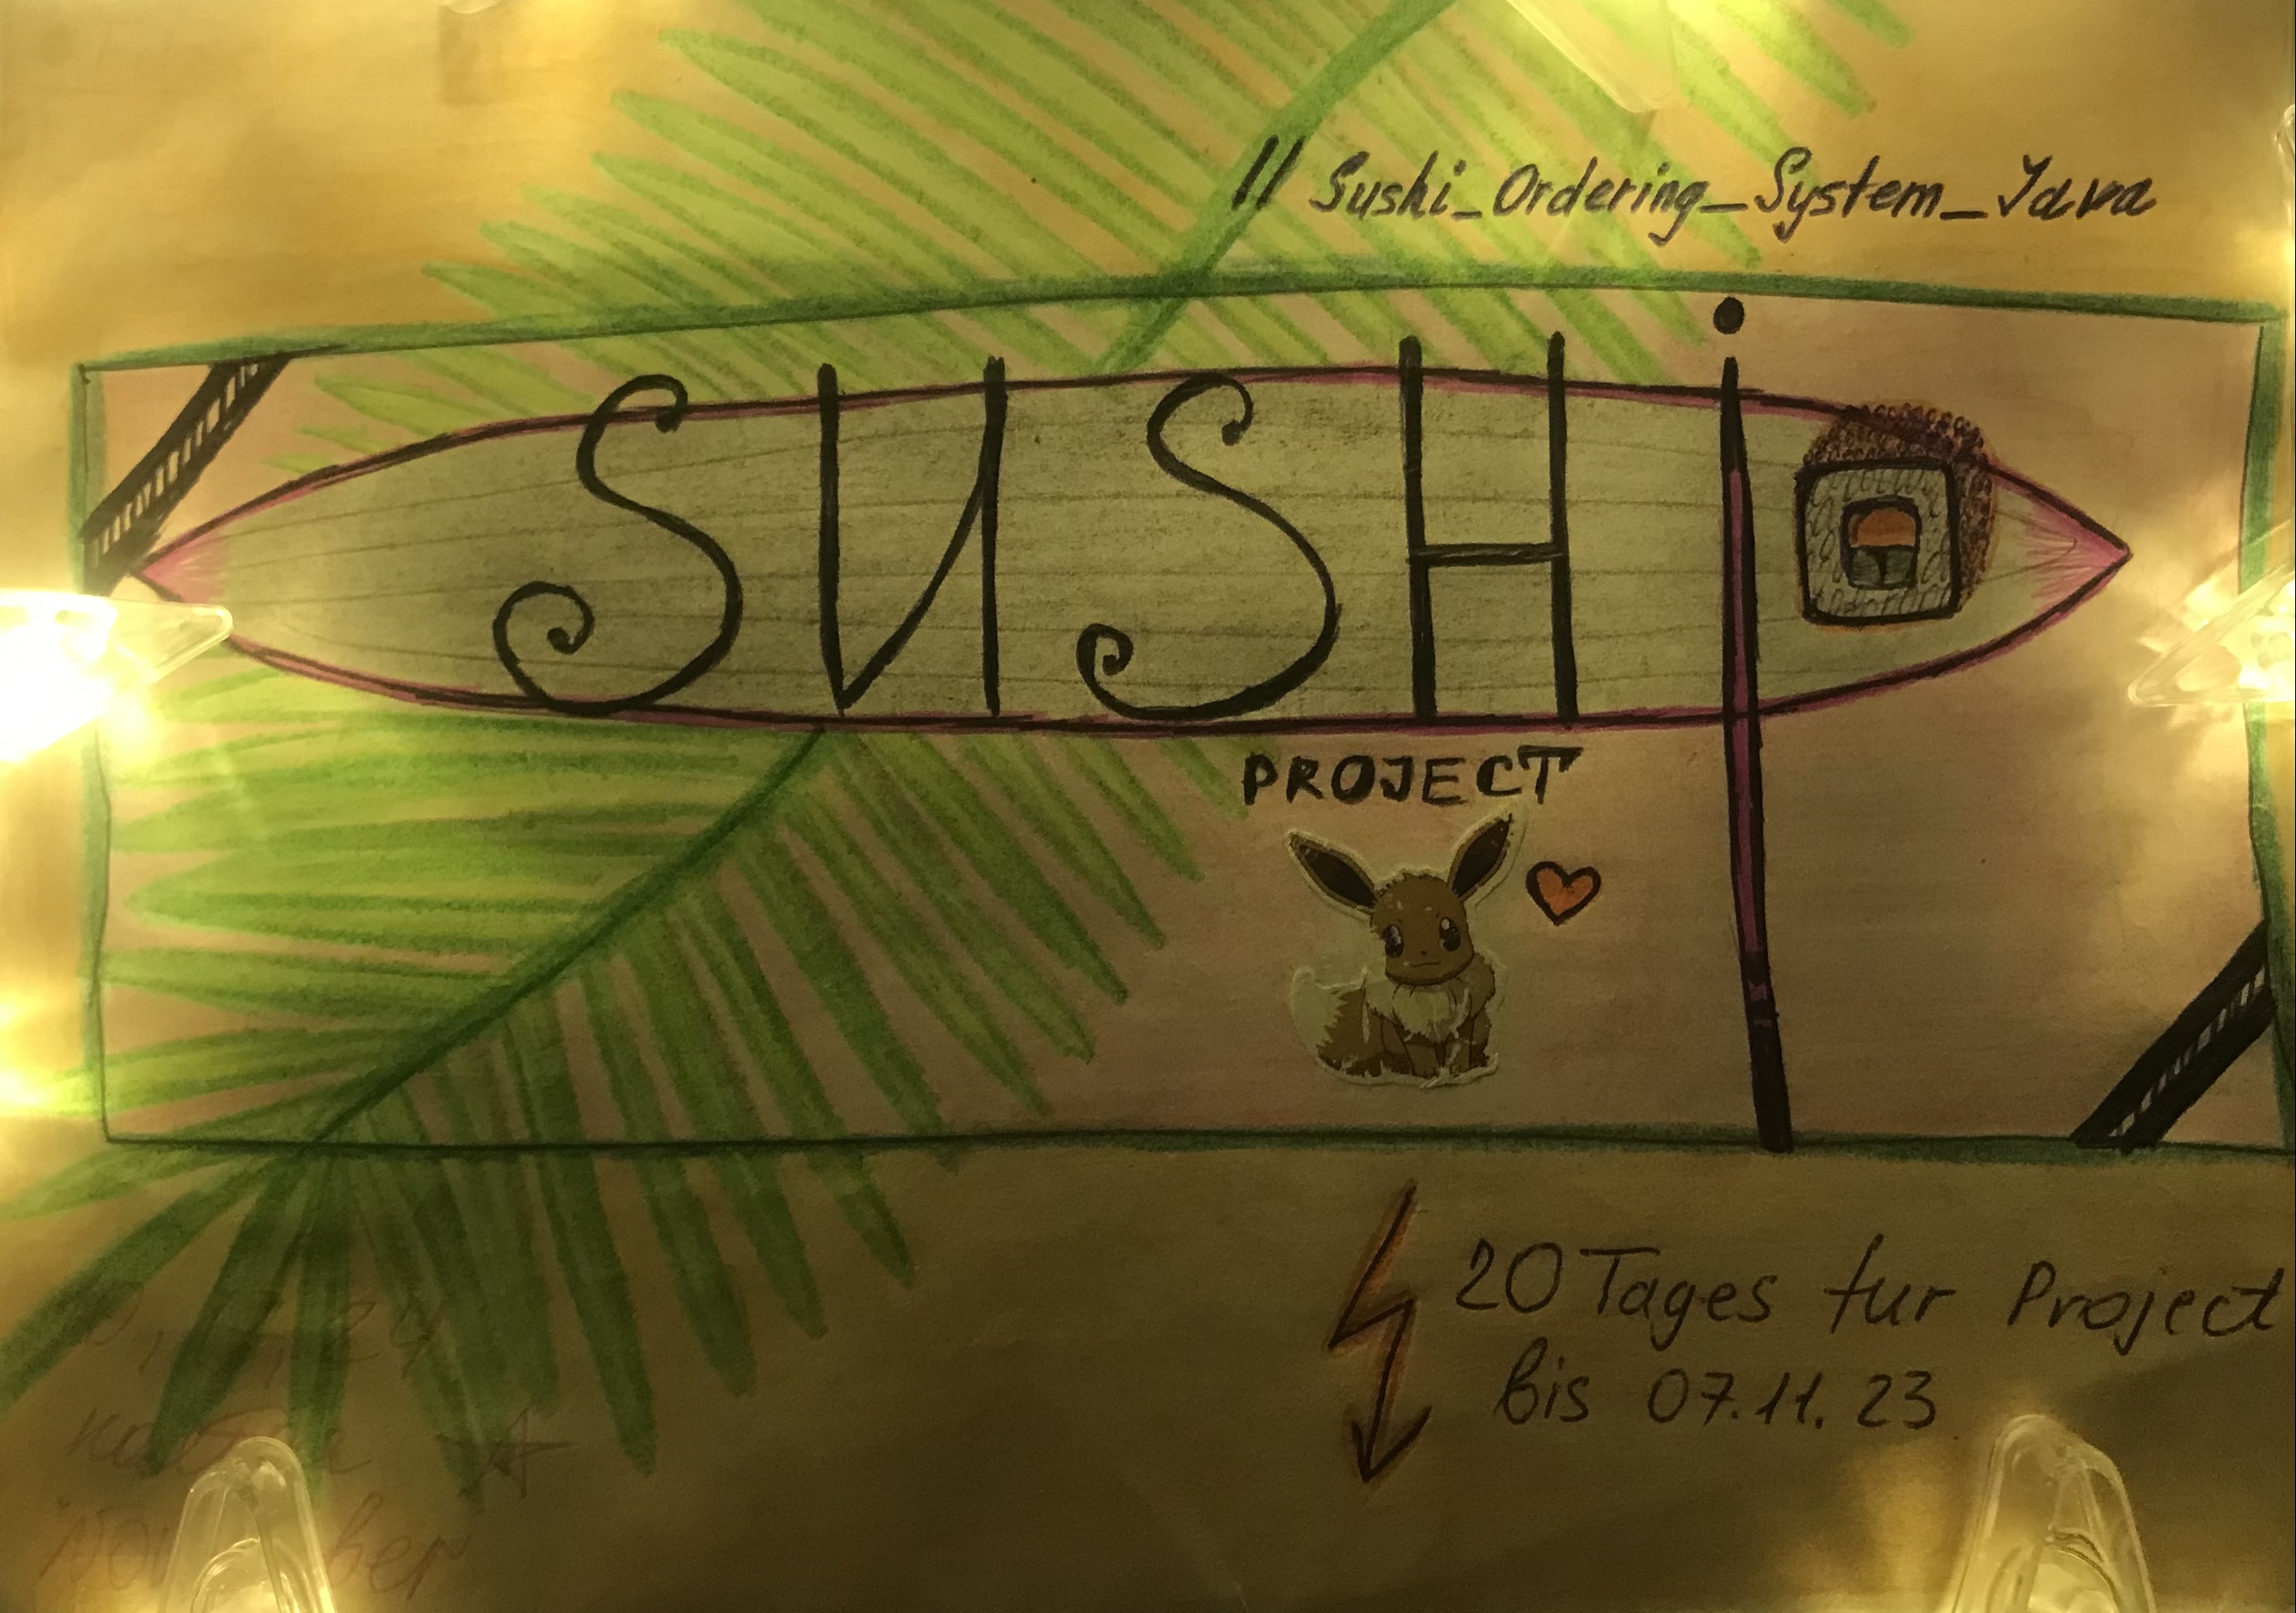 // Sushi_Ordering_System_Java
SUSHi
PROJECT
20 Tages fur Project
bis 07.11.23